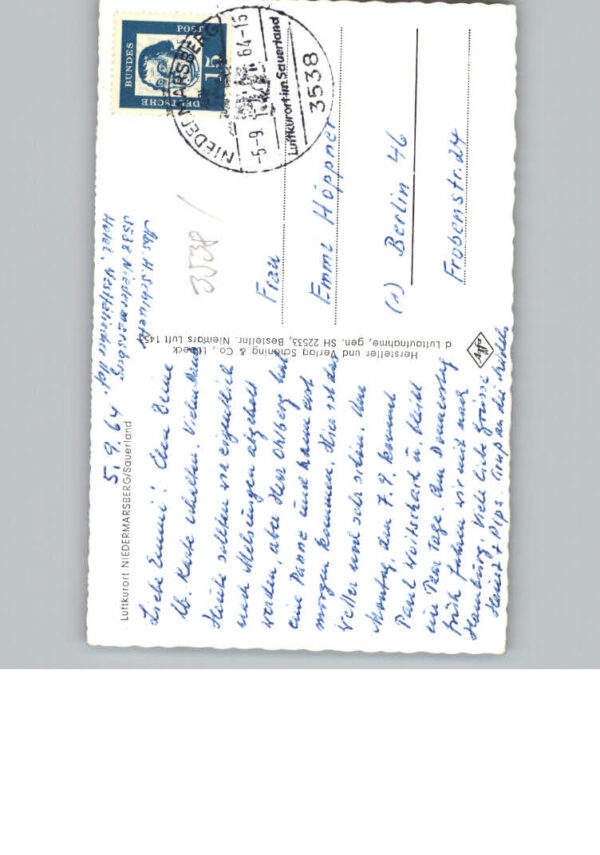 Luftkurort NIEDERMARSBERG/Sauerland
5. 9. 64
Liebe Emmi! Eben Deine
lb. Karte erhalten. Vielen Dank
Heute sollten wir eigentlich
nach Melsungen abgeholt
werden, aber Herr Ohlberg hat
eine Panne und kann erst
morgen kommen. Hier ist das
Wetter noch sehr schön. Am
Montag, den 7. 9. kommt
Paul Woitschach u. bleibt
ein paar Tage. Am Donnerstag
früh fahren wir mit nach
Hamburg. Viele liebe Grüsse
Heinz + Pips.
Abs. H.
3538 Niedermarsberg
Hotel, Westfälischer Hof.
Hersteller und Verlag Schöning & Co., Lübeck
d Luftaufnahme, gen. SH 22533, Bestellnr. Niemars Luft 1454
Agfa
DEUTSCHE
BUNDES
POST
15
NIEDERMARSBERG
-5-9.
64-15
Luftkurort im Sauerland
3538
3538
Frau
Emmi Höppner
(1) Berlin 46
Frobenstr. 24